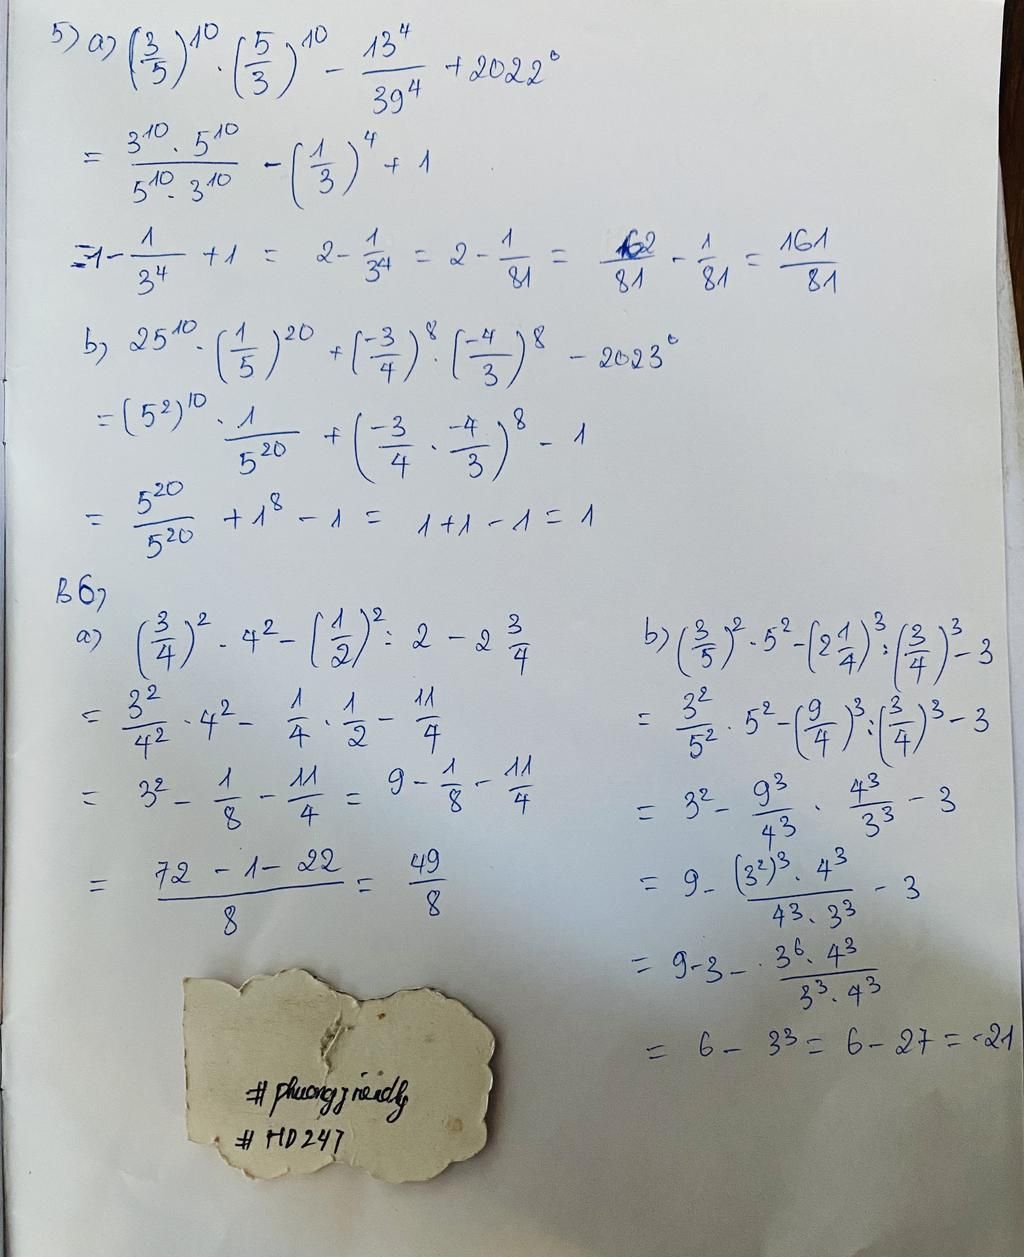 5) a) (3/5)^10 . (5/3)^10 - 13^4/39^4 + 2022^0
= 3^10 . 5^10 / 5^10 . 3^10 - (1/3)^4 + 1
= 1 - 1/3^4 + 1 = 2 - 1/3^4 = 2 - 1/81 = 162/81 - 1/81 = 161/81
b) 25^10 . (1/5)^20 + (-3/4)^8 . (-4/3)^8 - 2023^0
= (5^2)^10 . 1/5^20 + (-3/4 . -4/3)^8 - 1
= 5^20/5^20 + 1^8 - 1 = 1 + 1 - 1 = 1
B6)
a) (3/4)^2 . 4^2 - (1/2)^2 : 2 - 2 3/4
= 3^2/4^2 . 4^2 - 1/4 . 1/2 - 11/4
= 3^2 - 1/8 - 11/4 = 9 - 1/8 - 11/4
= 72 - 1 - 22 / 8 = 49/8
b) (3/5)^2 . 5^2 - (2 1/4)^3 : (3/4)^3 - 3
= 3^2/5^2 . 5^2 - (9/4)^3 : (3/4)^3 - 3
= 3^2 - 9^3/4^3 . 4^3/3^3 - 3
= 9 - (3^2)^3 . 4^3 / 4^3 . 3^3 - 3
= 9 - 3 - . 3^6 . 4^3 / 3^3 . 4^3
= 6 - 3^3 = 6 - 27 = -21
# HD247